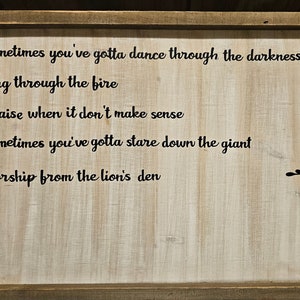 ometimes you've gotta dance through the darkness
ng through the fire
aise when it don't make sense
ometimes you've gotta stare down the giant
orship from the lion's den